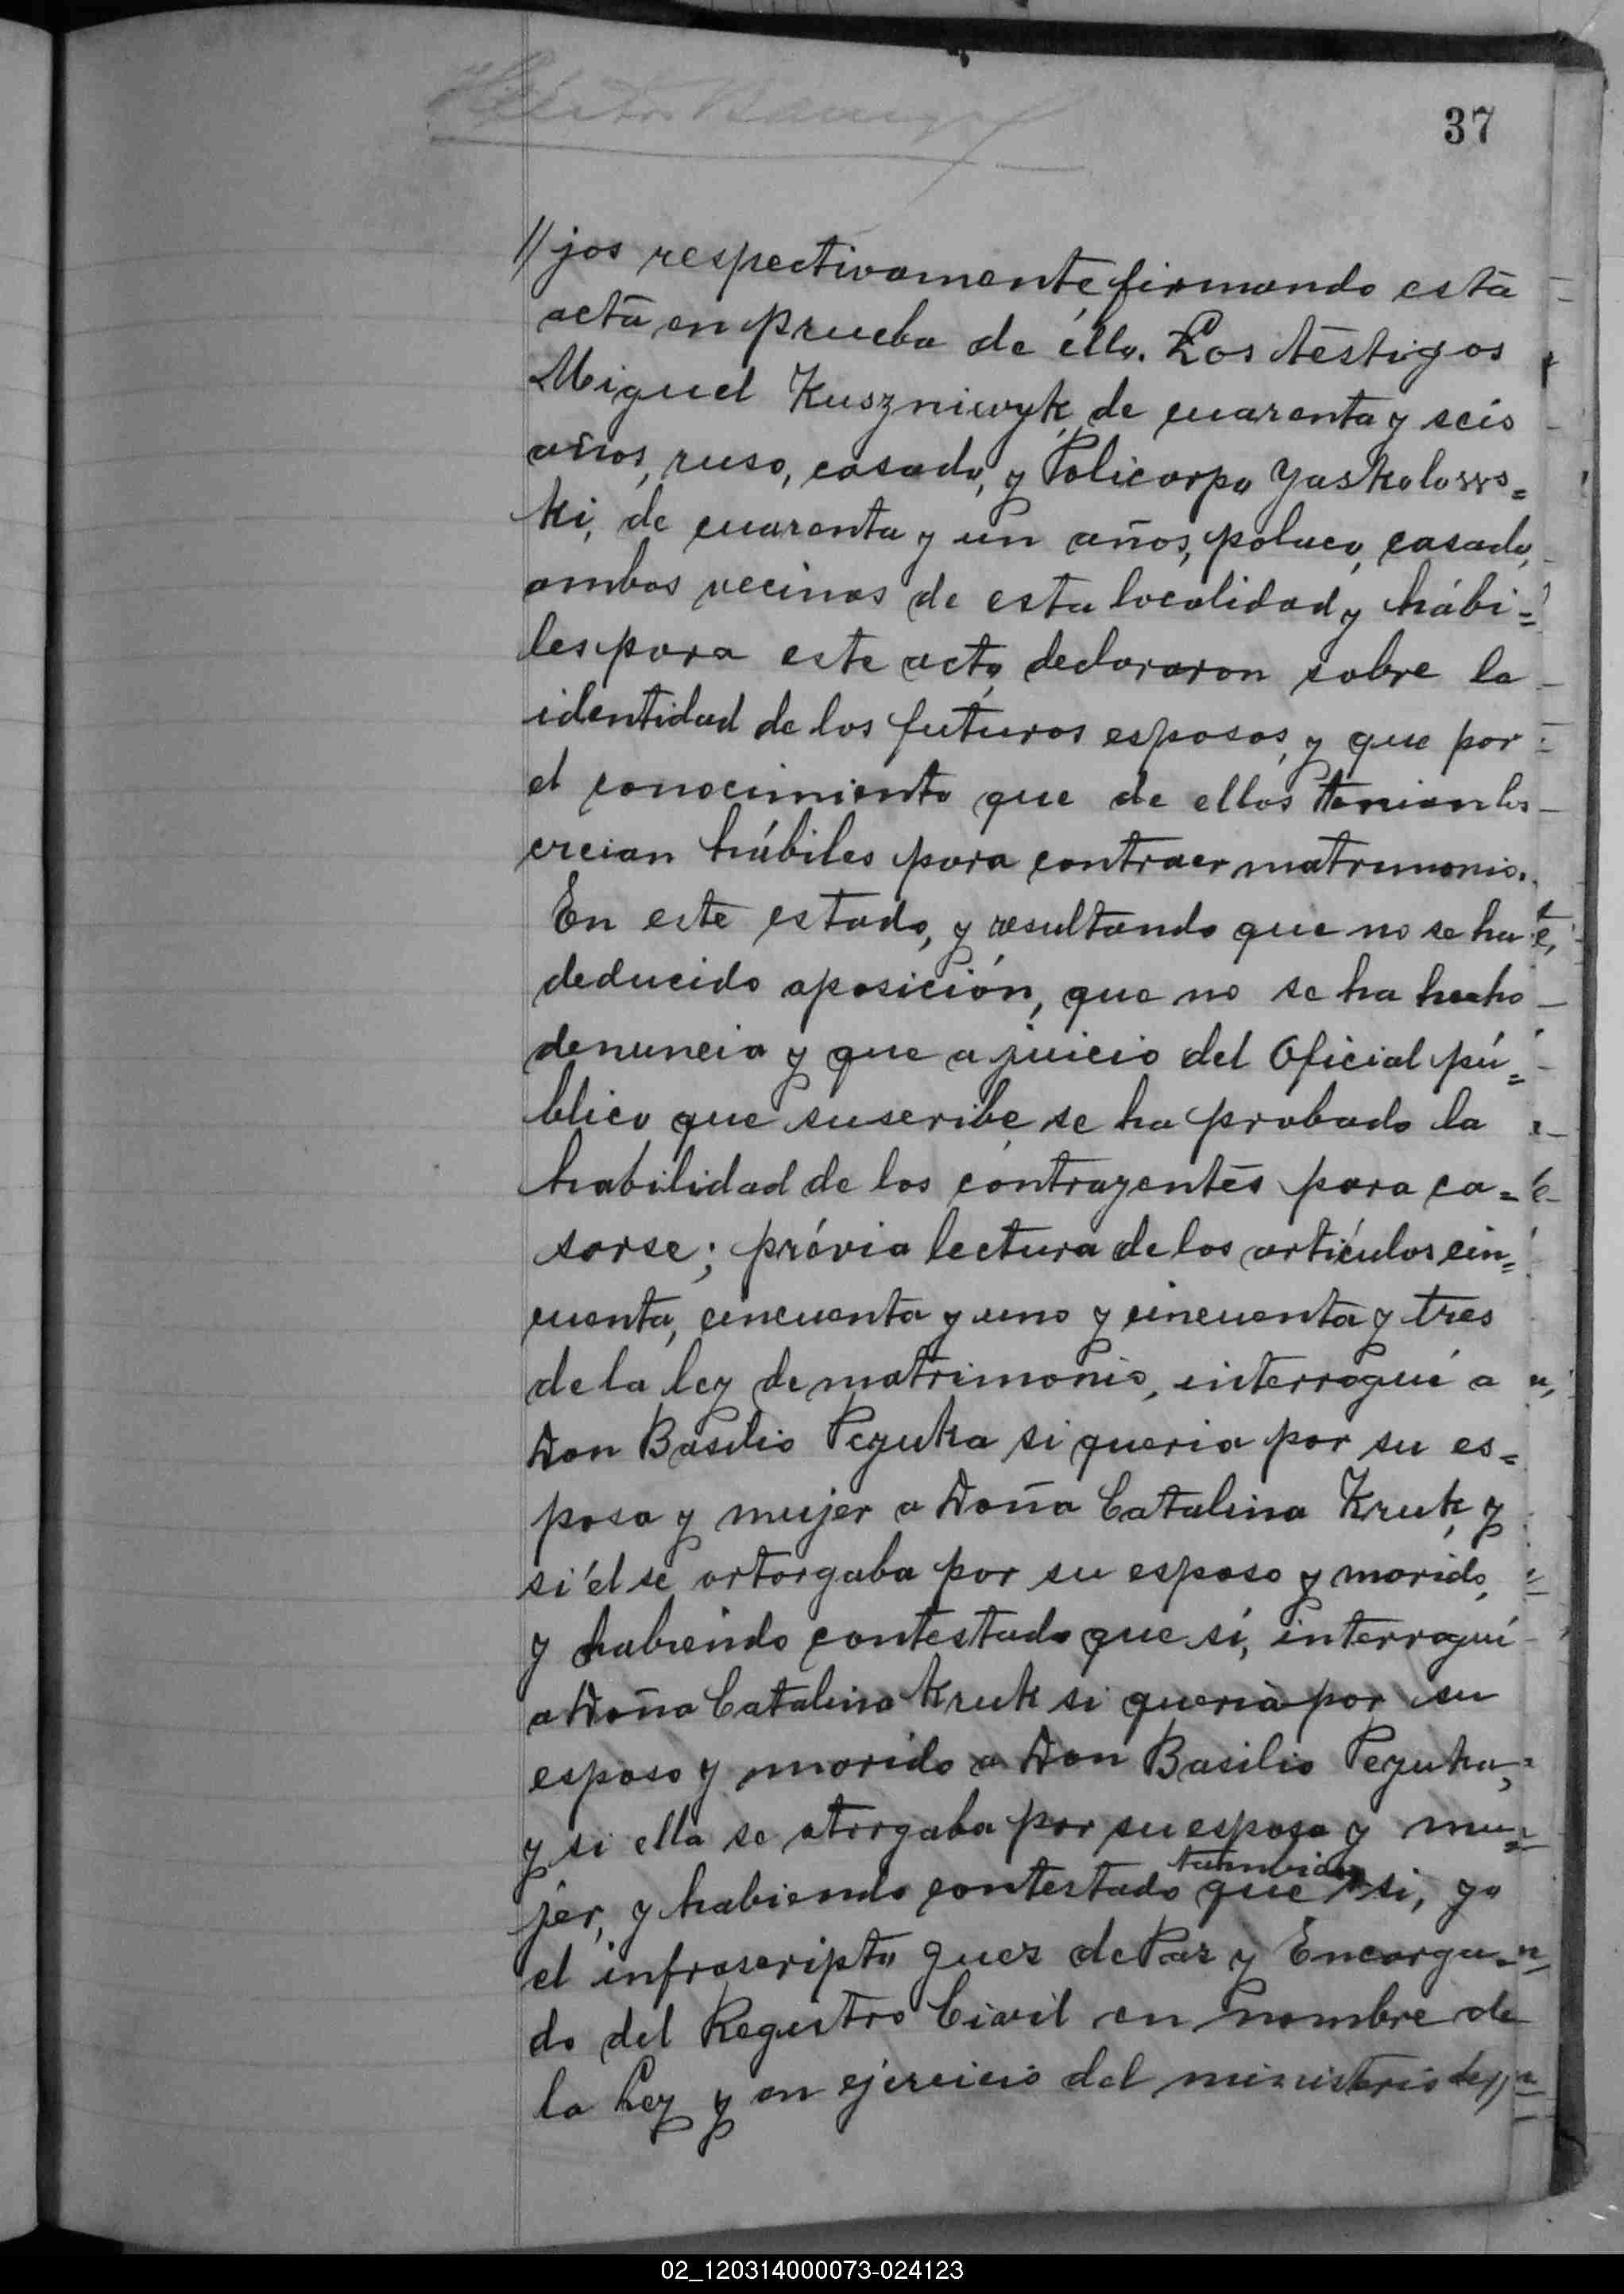 37
//jos respectivamente, firmando esta
acta en prueba de éllo. Los testigos
Miguel Kuszniwyk, de cuarenta y seis
años, ruso, casado, y Policarpo Yaskolows=
ki, de cuarenta y un años, polaco, casado,
ambos vecinos de esta localidad y hábi=
les para este acto, declararon sobre la
identidad de los futuros esposos, y que por
el conocimiento que de ellos tenian los
creian hábiles para contraer matrimonio.
En este estado, y resultando que no se ha
deducido oposición, que no se ha hecho
denuncia y que a juicio del Oficial pú=
blico que suscribe, se ha probado la
habilidad de los contrayentes para ca=
sarse; prévia lectura de los artículos cin=
cuenta, cincuenta y uno y cincuenta y tres
de la ley de matrimonio, interrogué a
Don Basilio Pezuka si queria por su es=
posa y mujer a Doña Catalina Kruk, y
si él se ortorgaba por su esposo y marido,
y habiendo contestado que sí, interrogué
a Doña Catalina Kruk si queria por su
esposo y marido a Don Basilio Pezuka,
y si ella se otorgaba por su esposa y mu=
jer, y habiendo contestado que también si, yo
el infrascripto Juez de Paz y Encarga=
do del Registro Civil en nombre de
la Ley y en ejercicio del ministerio de//
02_120314000073-024123